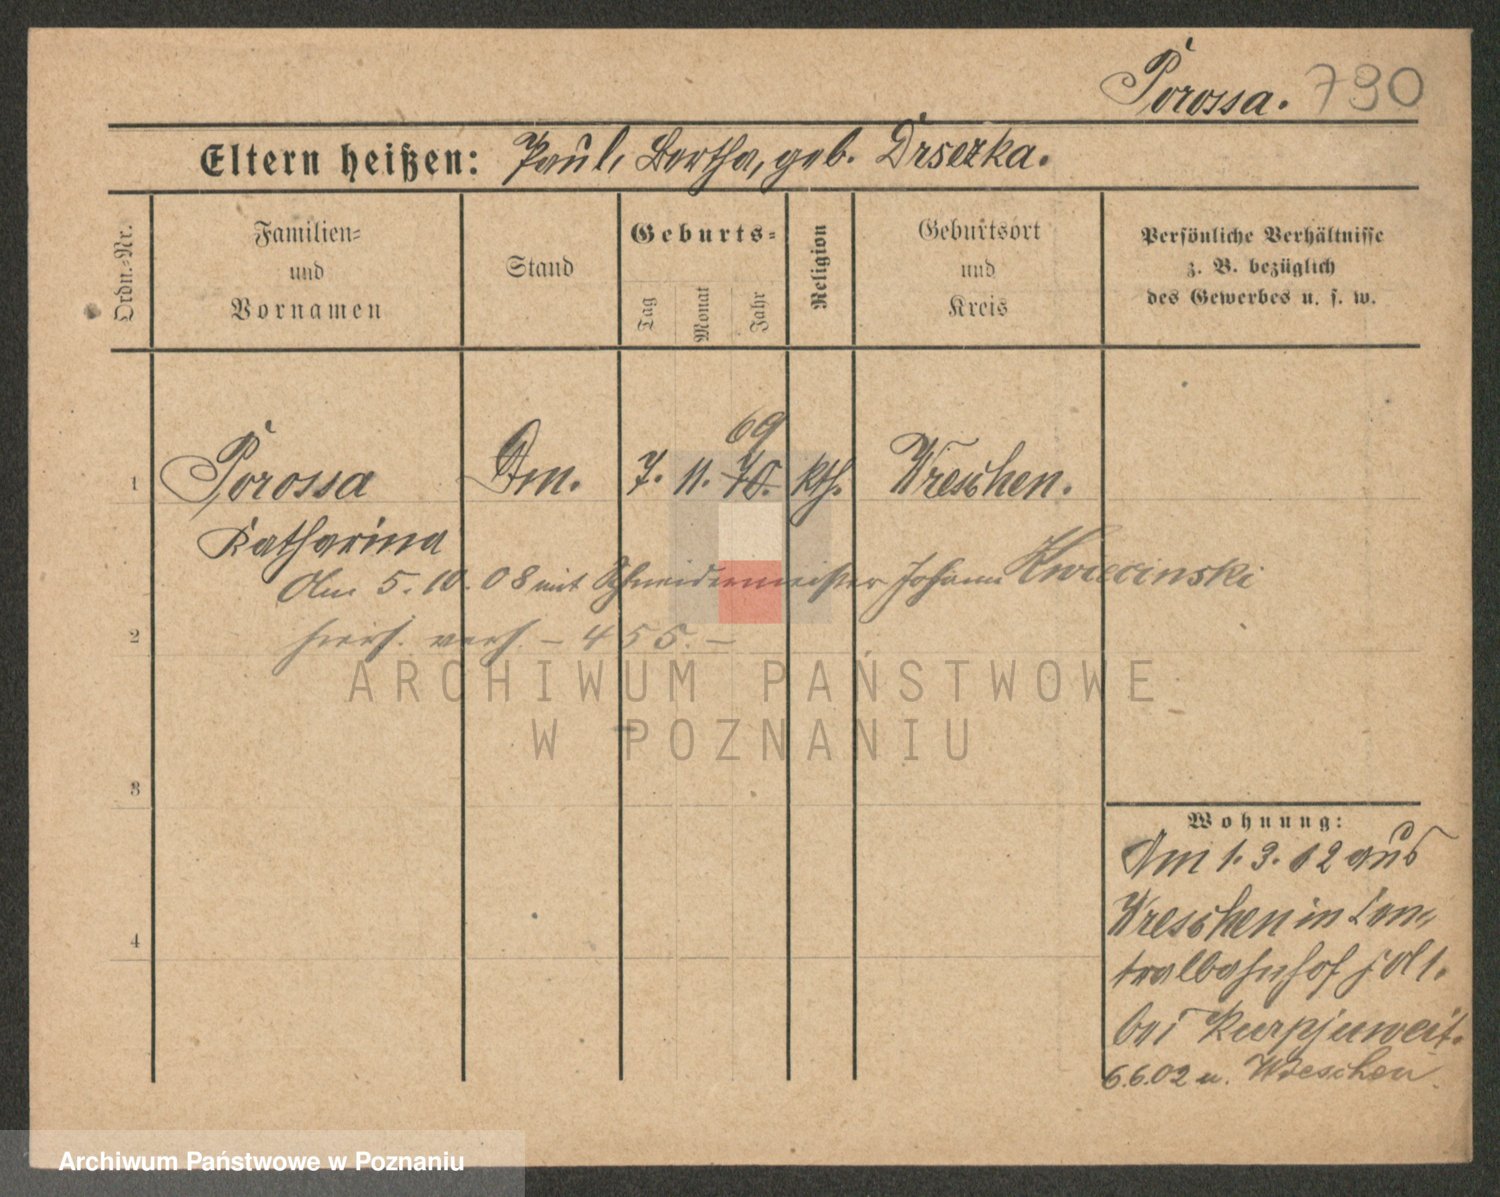 Porossa. 790
Eltern heißen: Paul, Bertha, geb. Drsezka.
Ordn.-Nr.
Familien-
und
Vornamen
Stand
Geburts-
Tag
Monat
Jahr
Religion
Geburtsort
und
Kreis
Persönliche Verhältnisse
z. B. bezüglich
des Gewerbes u. s. w.
69
1 Porossa Dm. 7. 11. 70. kth. Wreschen.
Katharina
Am 5. 10. 08 mit Schneidermeister Johann Kwiecinski
2 hiers. verh. – 455. –
ARCHIWUM PAŃSTWOWE
W POZNANIU
3
Wohnung:
Am 1. 3. 02 aus
Wreschen in Cen-
4 tralbahnhof
bei Kurpjuweit.
6.6.02 n. Wreschen
Archiwum Państwowe w Poznaniu